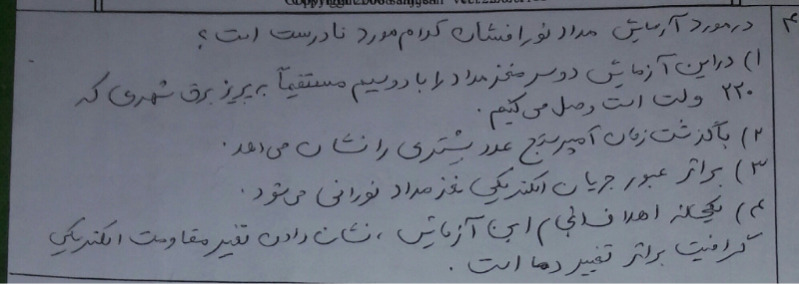 ۴
در مورد آزمایش مداد نورافشان کدام مورد نادرست است؟
۱) در این آزمایش دو سر مغز مداد را با دو سیم مستقیماً به پریز برق شهری که
۲۲۰ ولت است وصل می‌کنیم.
۲) با گذشت زمان آمپرسنج عدد بیشتری را نشان می‌دهد.
۳) بر اثر عبور جریان الکتریکی مغز مداد نورانی می‌شود.
۴) یکی از اهداف انجام این آزمایش، نشان دادن تغییر مقاومت الکتریکی
گرافیت بر اثر تغییر دما است.